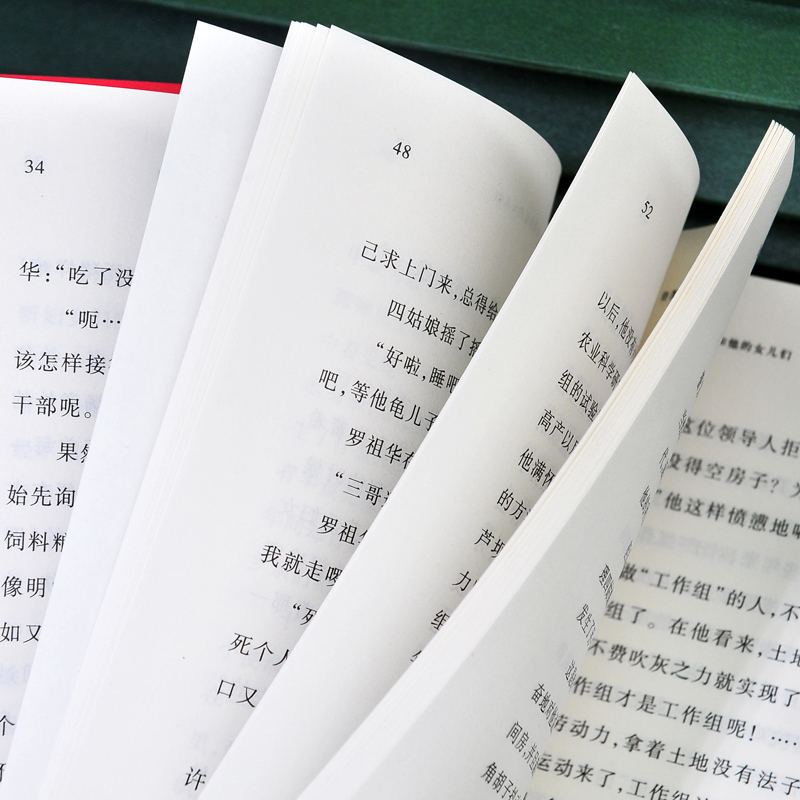 34
华：“吃了没
“呃…
该怎样接
干部呢。
果然
始先询
饲料精
像明
如又
个
48
己求上门来，总得给
四姑娘摇了摇
“好啦，睡吧
吧，等他龟儿子
罗祖华在
“三哥
罗祖华
我就走
“死
死个人
口又
许
52
以后，他没有
农业科学研
组的试验
高产以
他满怀
的方
芦坝
力
组
发生
奋地对他
间房，并
角胡子
和她的女儿们
这位领导人拒
没得空房子？为
”他这样愤懑地
做“工作组”的人，不
组了。在他看来，土地
不费吹灰之力就实现了
作组才是工作组呢！…
劳动力，拿着土地没有法子
运动来了，工作组